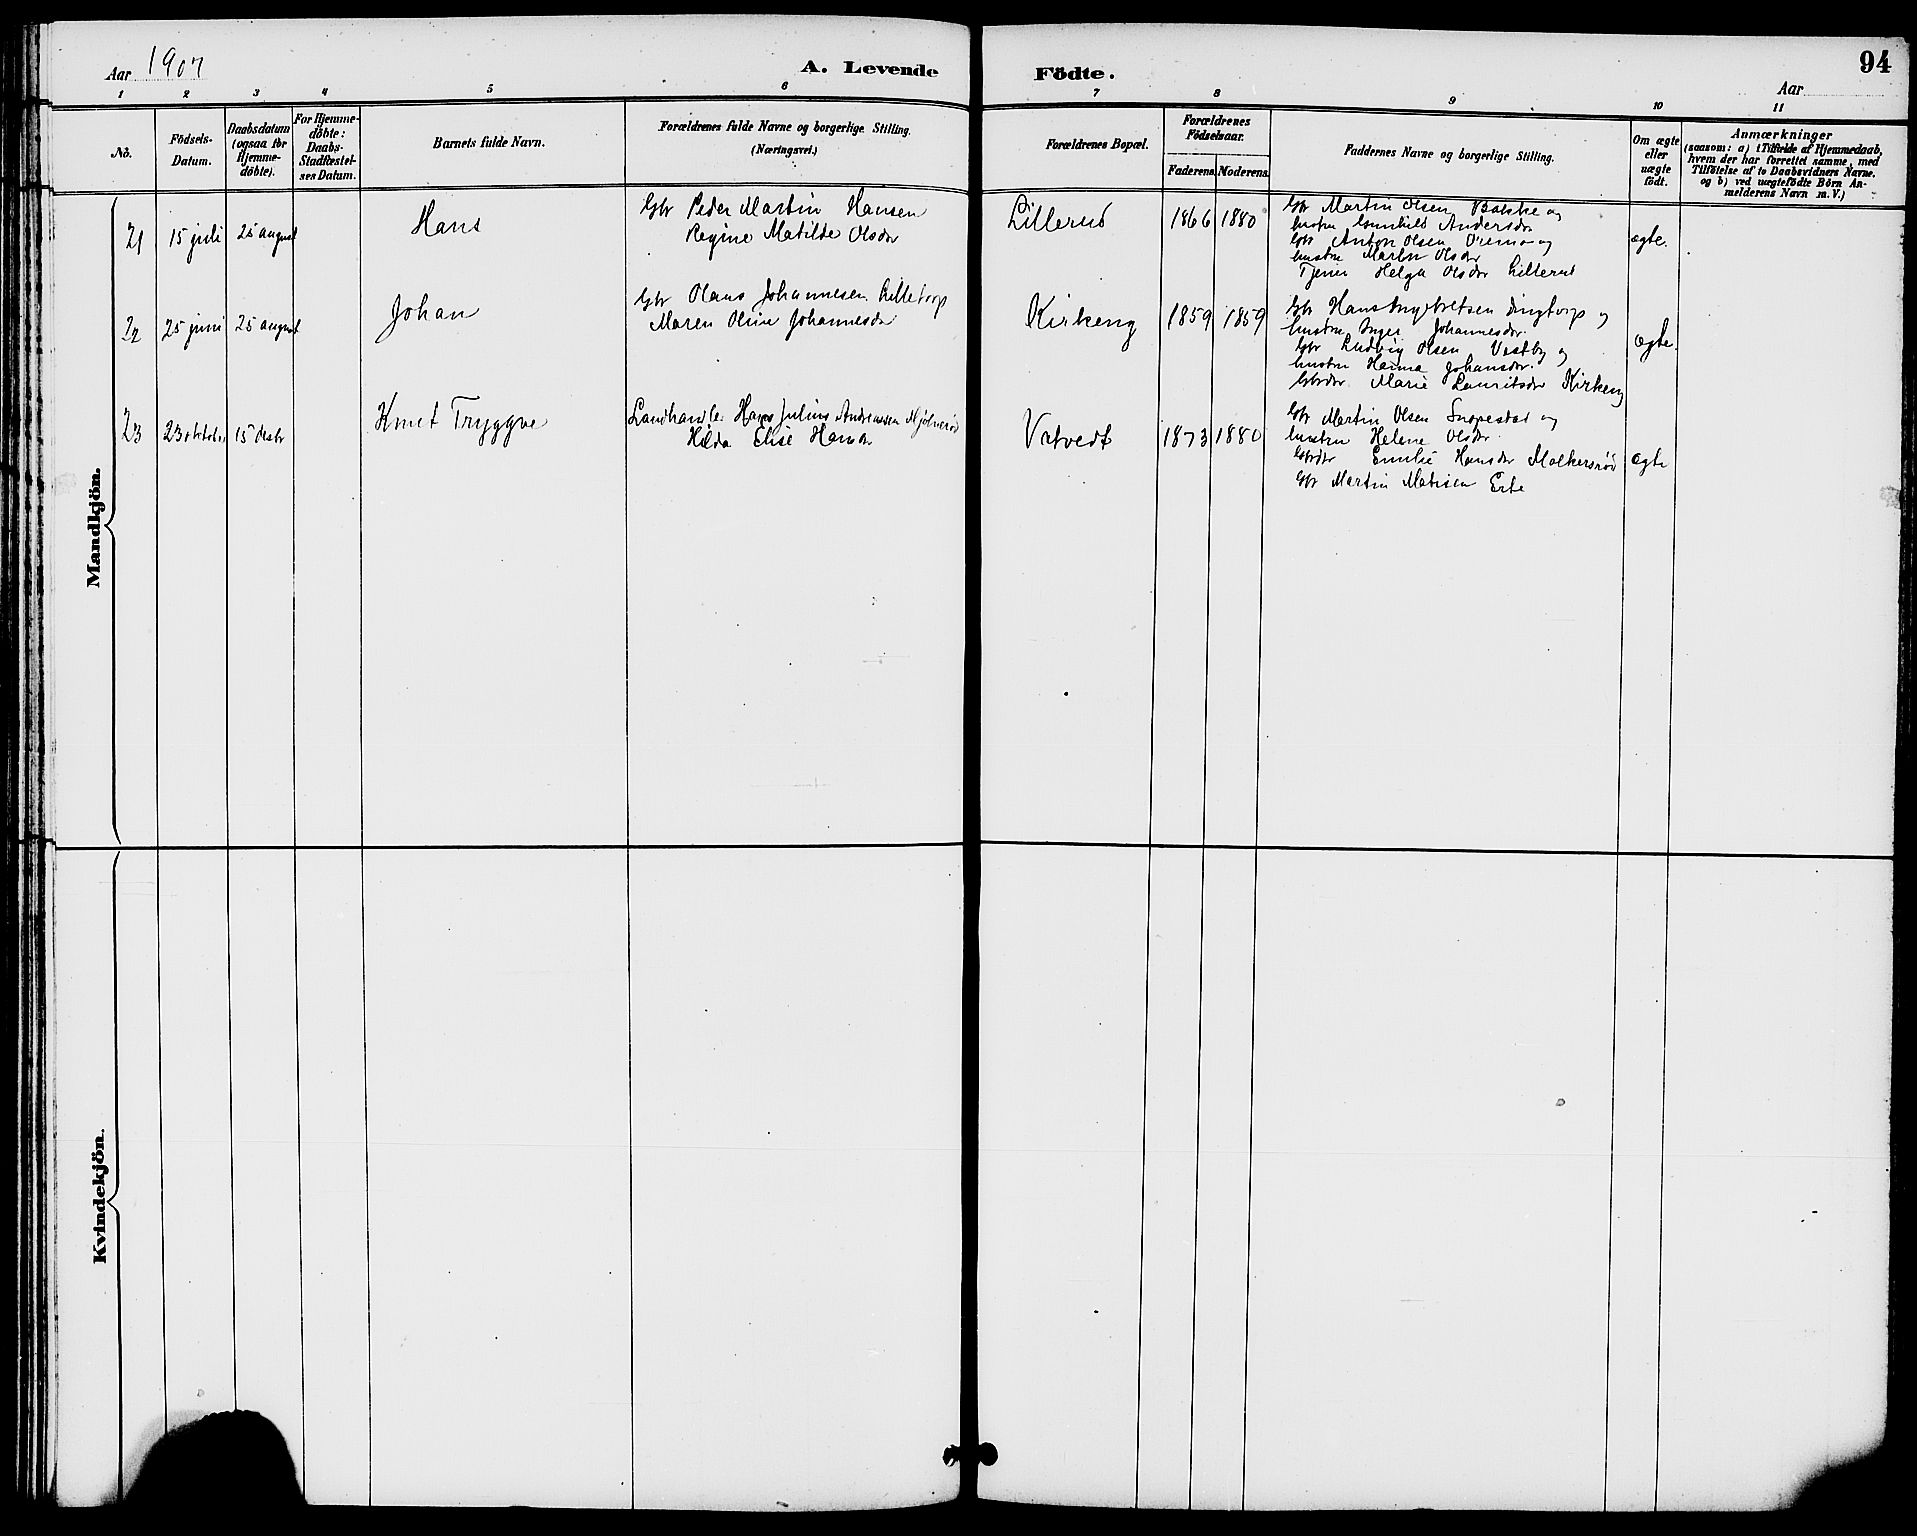 Aar 1907
A. Levende Födte.
94
Aar
1 2 3 4 5 6 7 8 9 10 11
No.
Födsels-Datum.
Daabsdatum (ogsaa for Hjemme-döbte).
For Hjemme-döbte: Daabs-Stadfæstel-ses Datum.
Barnets fulde Navn.
Forældrenes fulde Navne og borgerlige Stilling. (Næringsvei.)
Forældrenes Bopæl.
Forældrenes Födselsaar.
Faderens. Moderens.
Faddernes Navne og borgerlige Stilling.
Om ægte eller uægte födt.
Anmærkninger
(saasom: a) i Tilfælde af Hjemmedaab,
hvem der har forrettet samme, med
Tilföielse af to Daabsvidners Navne.
og b) ved uægtefödte Börn An-
melderens Navn m. V.)
Mandkjön.
21 15 juli 25 august Hans
Gbr Peder Martin Hansen
Regine Matilde Olsdr
Lillerud 1866 1880
Gbr Martin Olsen Bakke og
hustru Gunhild Andersdr
Gbr Anton Olsen og
hustru Olsdr
Tjener Helga Olsdr Lillerud
ægte.
22 25 juni 25 august Johan
Gbr Olaus Johannesen Lilletorp
Maren Oline Johannesdr
Kirkeng 1859 1859
Gbr Hans og
hustru Inger Johannesdr.
Gbr Ludvig Olsen Vestby og
hustru Hanna Johansdr.
Gbrdr. Marie Lauritsdr Kirkeng
ægte.
23 23 oktober 15 desbr Knut Tryggve
Landhandler Hans Julius Andreassen
Hilda Elise Hansdr
Vatvedt 1873 1880
Gbr Martin Olsen Snopestad og
hustru Helene Olsdr.
Gbrdtr Emilie Hansdr
Gbr Martin Matisen Erte
ægte
Kvindekjön.